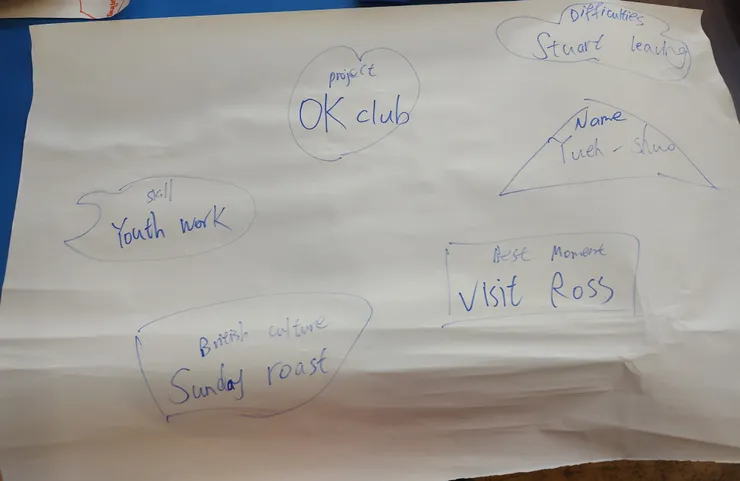 Difficulties
Stuart leaving
project
OK club
Name
Yueh - shuo
skill
Youth work
Best Moment
Visit Ross
British culture
Sunday roast